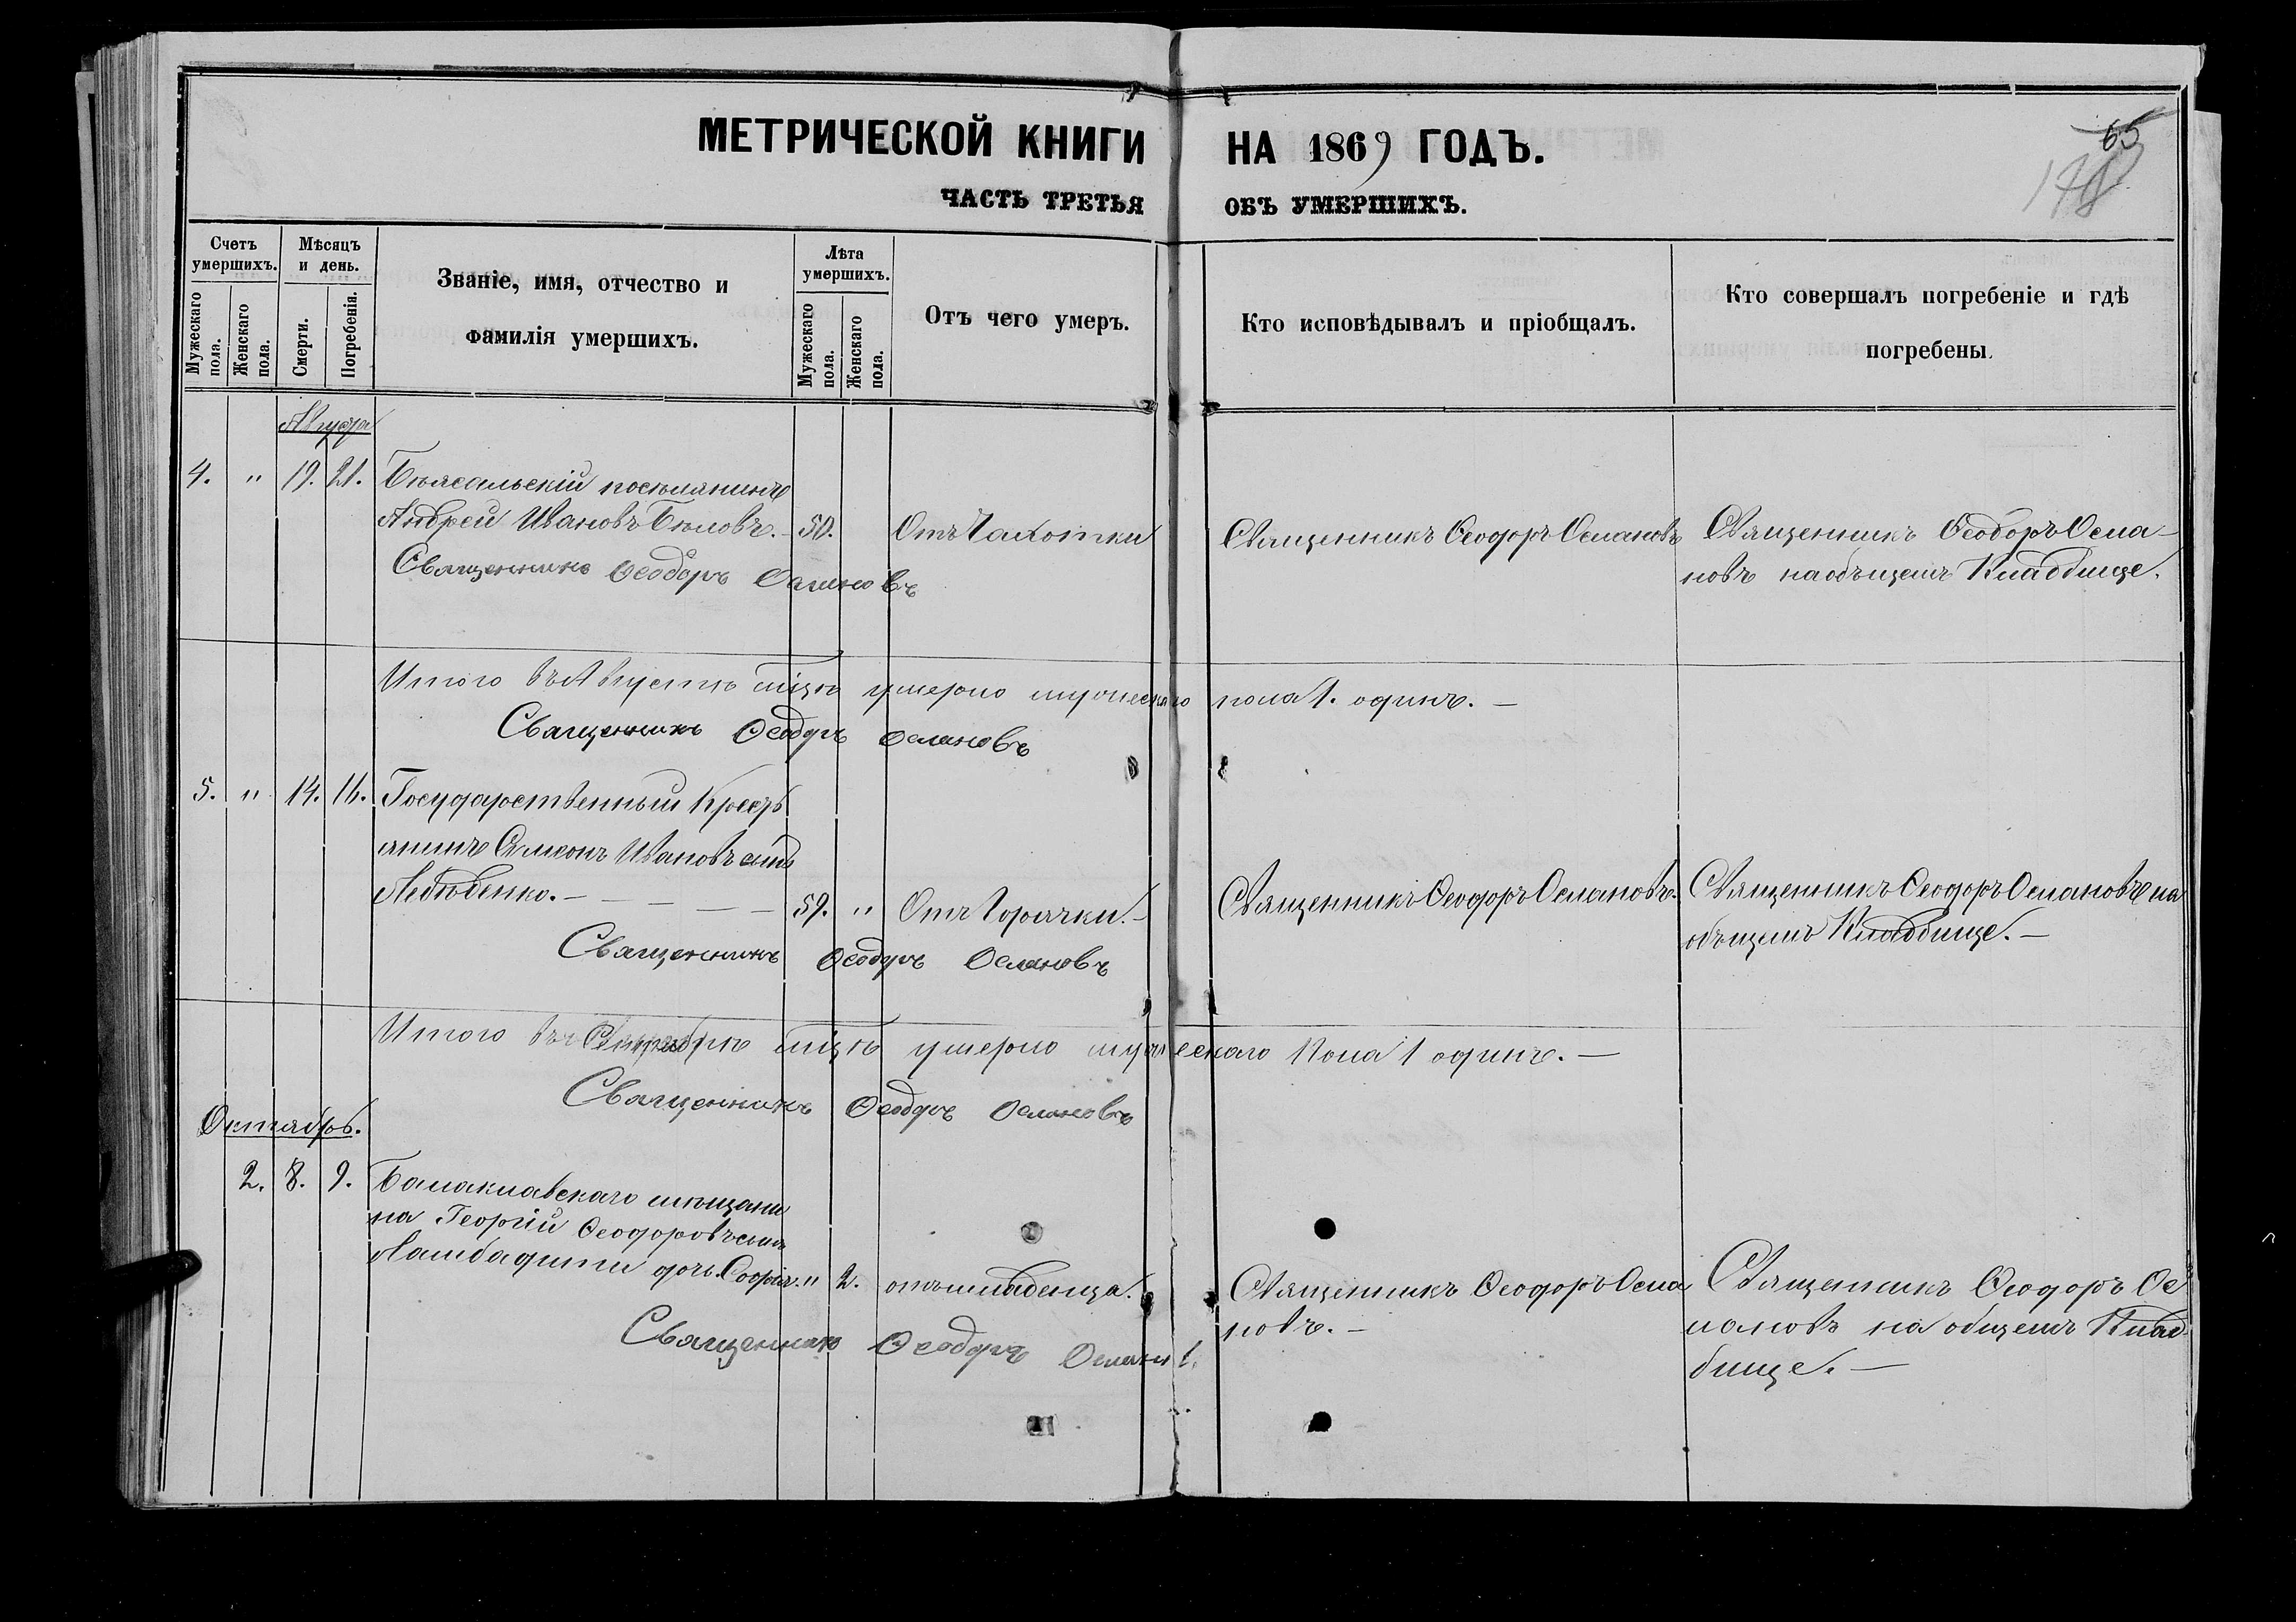 65
МЕТРИЧЕСКОЙ КНИГИ НА 1869 ГОДЪ.
ЧАСТЬ ТРЕТЬЯ ОБЪ УМЕРШИХЪ.
Счетъ умершихъ.
Мужескаго пола.
Женскаго пола.
Мѣсяцъ и день.
Смерти.
Погребенія.
Званіе, имя, отчество и
фамилія умершихъ.
Лѣта умершихъ.
Мужескаго пола.
Женскаго пола.
Отъ чего умеръ.
Кто исповѣдывалъ и пріобщалъ.
Кто совершалъ погребеніе и гдѣ
погребены.
4. " 19. 21. поселянинъ
Андрей Ивановъ Бѣловъ. 50. Отъ Чахотки Священникъ Ѳеодоръ Османовъ Священникъ Ѳеодоръ Осма-
новъ на общемъ Кладбище.
Священникъ Ѳеодоръ Османовъ
Итого въ Августѣ мцѣ умерло мужескаго пола 1. одинъ. —
Священникъ Ѳеодоръ Османовъ
5. " 14. 16. Государственный Кресть
янинъ Симеонъ Ивановъ сынъ
59. " Отъ Горячки. — Священникъ Ѳеодоръ Османовъ. Священникъ Ѳеодоръ Османовъ на
общемъ Кладбище. —
Священникъ Ѳеодоръ Османовъ
Итого въ Сентябрѣ мцѣ умерло мужескаго пола 1 одинъ. —
Священникъ Ѳеодоръ Османовъ
Октябрь.
2. 8. 9. Балаклавскаго мѣщани
на Георгій Ѳеодоровъ сынъ
дочь Софія. " 2. отъ младенца. Священникъ Ѳеодоръ Осма
новъ. — Священникъ Ѳеодоръ Ос
мановъ на общемъ Клад
бище. —
Священникъ Ѳеодоръ